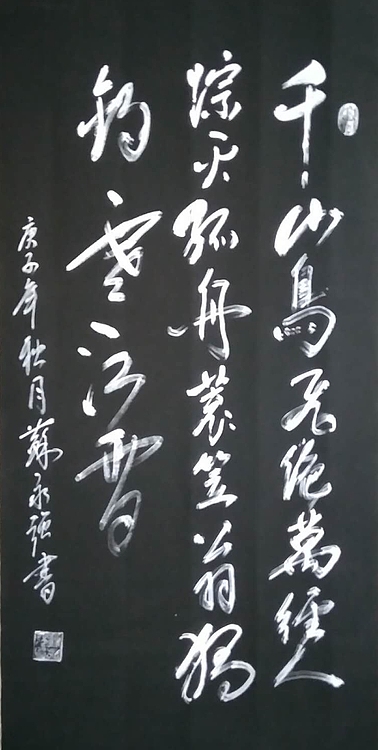 千山鳥飛絕萬經人
踪灭孤舟蓑笠翁獨
釣寒江雪
庚子年秋月蘇永强書